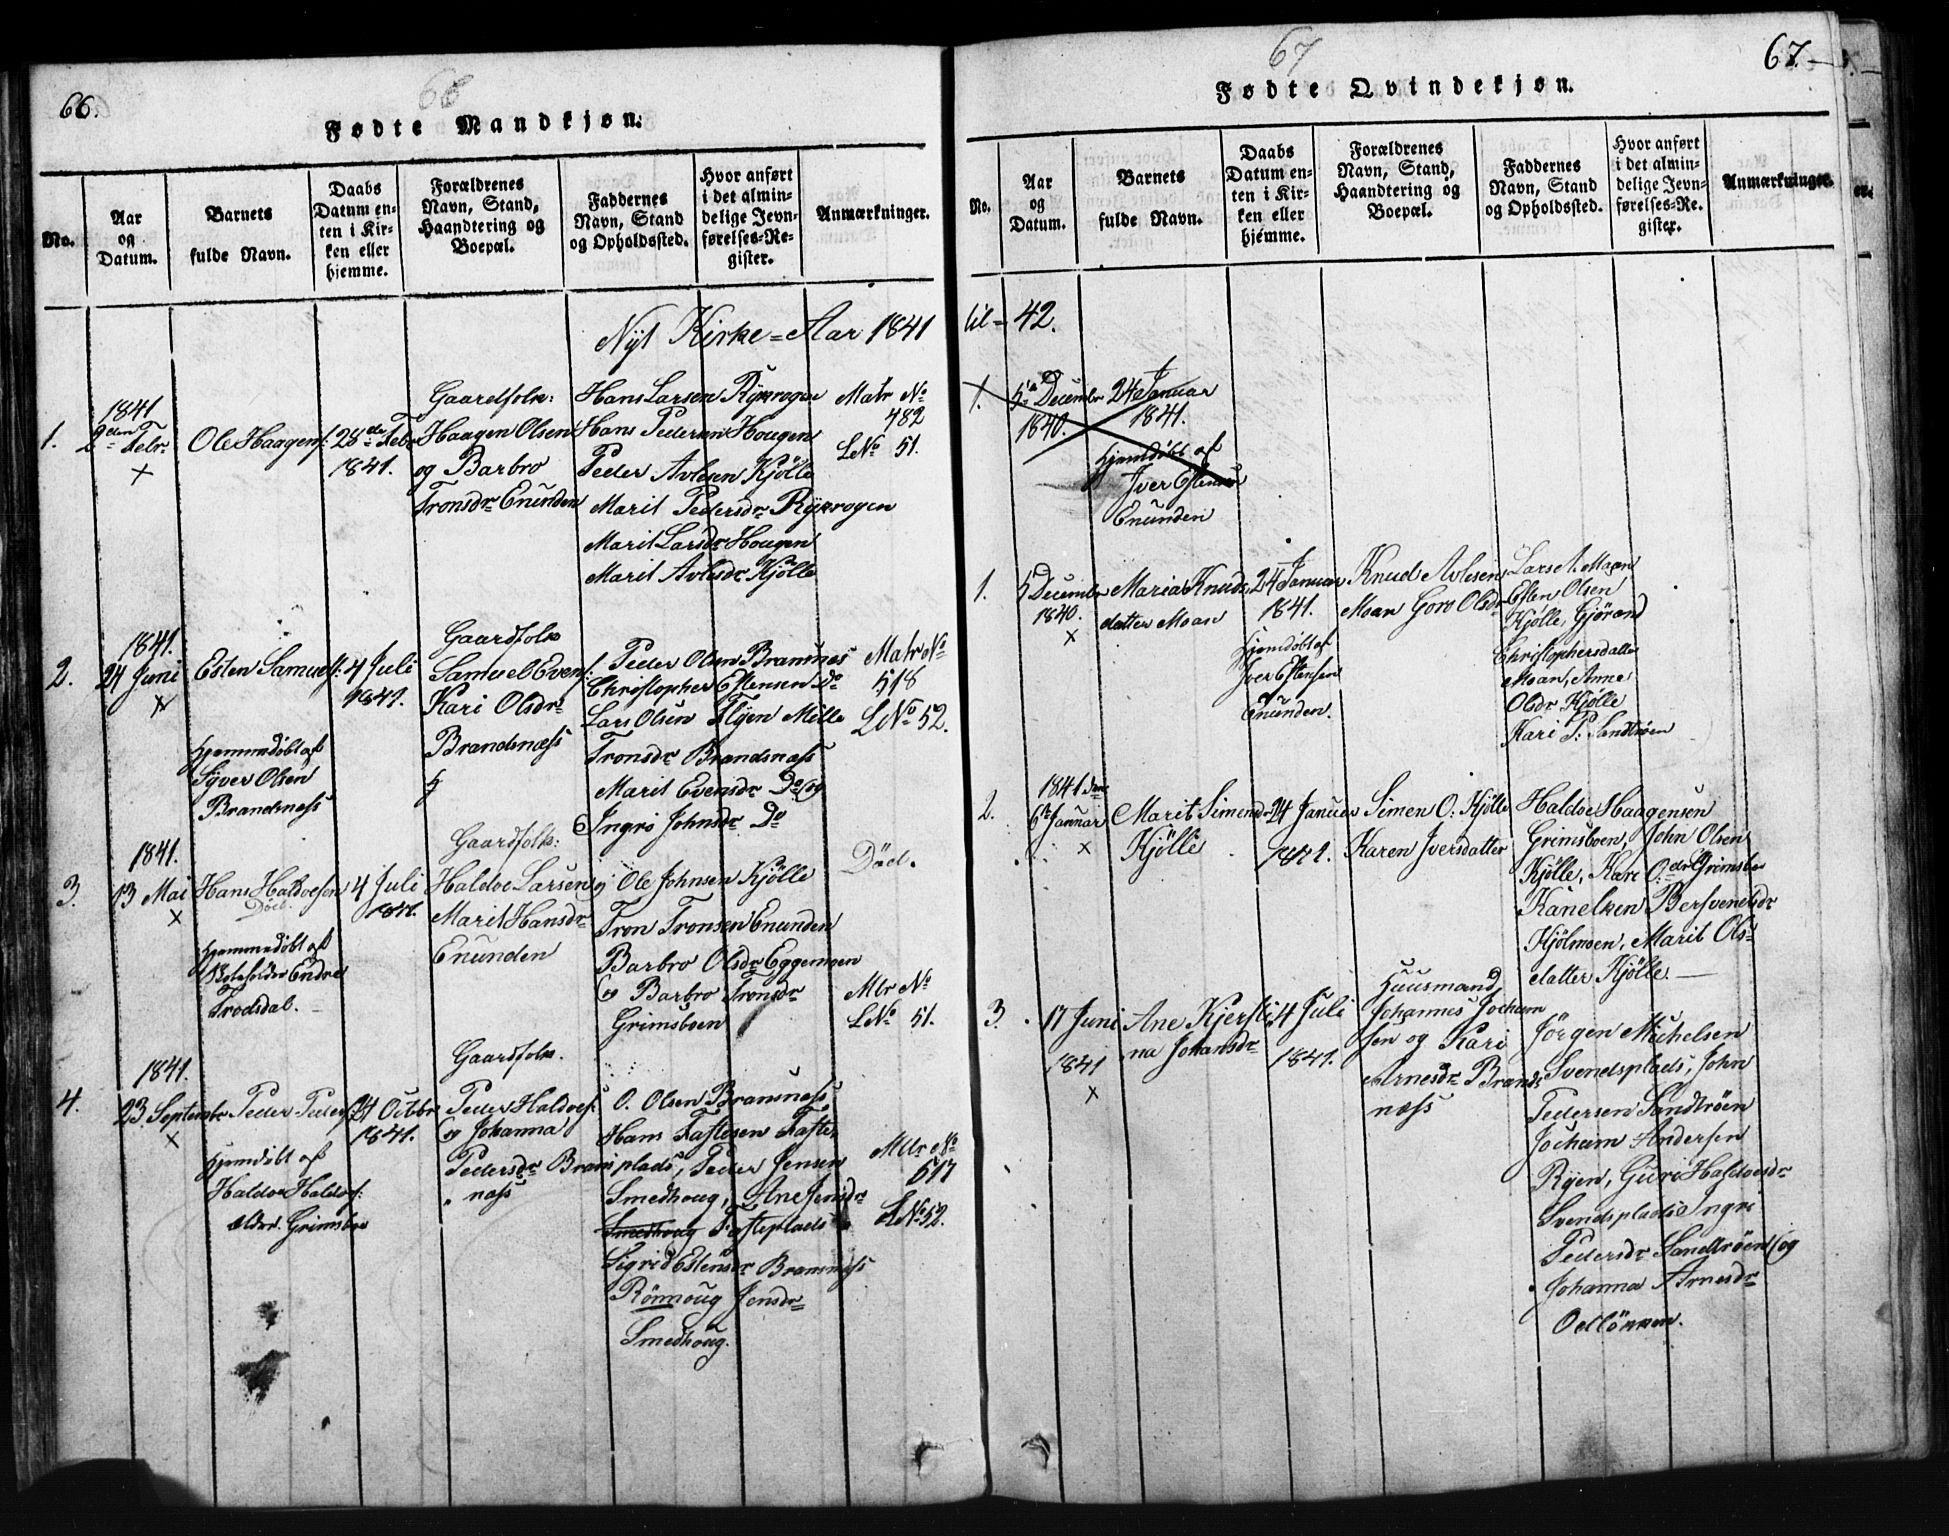 66.
66
Fødte Mandkjøn.
No.
Aar
og
Datum.
Barnets
fulde Navn.
Daabs
Datum en-
ten i Kir-
ken eller
hjemme.
Forældrenes
Navn, Stand,
Haandtering og
Boepæl.
Faddernes
Navn, Stand
og Opholdssted.
Hvor anført
i det almin-
delige Jevn-
førelses-Re-
gister.
Anmærkninger.
Nyt Kirke=Aar 1841
1.
1841
2den Febr
x
Ole Haagens:
28de Febr
1841.
Gaardfolk:
Haagen Olsen
og Barbro
Tronsdr Enunden
Hans Larsen Rÿxrogen
Hans Pedersen Hougen
Peder Avlesen Kjölle
Marit Pedersdr Ryxrogen
Marit Larsdr Hougen
Marit Avlesdr Kjölle
Matr No
482
LNo 51.
2.
1841.
24 Juni
x
Esten Samuels:
Hjemmedöbt af
Syver Olsen
Brandsnæss
4 Juli
1841.
Gaardfolk
Samuel Evens:
Kari Olsdr
Brandsnæss
Peder Olsen Bramnes
Christopher Estensen Do
Lars Olsen Flÿen Mille
Tronsdr Brandsnæss
Marit Evensdr Do og
Ingri Johnsdr Do
Matr No
518
LNo 52.
3.
1841.
13 Mai
x
Hans Haldoesen
Död.
Hjemmedöbt af
Endre
Trodsdal.
4 Juli
1841.
Gaardfolk:
Haldoe Larsen og
Marit Hansdr
Enunden
Ole Johnsen Kjölle
Tron Tronsen Enunden
Barbro Olsdr Eggemoen
og Barbro Tronsdr
Grimsboen
Död.
Mtr No
LNo 51.
4.
1841.
23 Septembr
x
Peder Peders:
Hjemdöbt af
Haldoe Haldos:
ældre. Grimsboe
24 Octbr
1841.
Gaardfolk.
Peder Haldoes:
og Johanna
Pedersdr Bram
næss
O. Olsen Bramnæss
Hans Tastesen Taste,
plads, Peder Jensen
Smedhoug, Ane Jensdr
Smedhoug Tasteplads
Sigrid Estensdr Bramnæss
Rönnoug Jensdr
Smedhoug.
Mtr No
517
LNo 52.
67
67.
Fødte Qvindekjøn.
No.
Aar
og
Datum.
Barnets
fulde Navn.
Daabs
Datum en-
ten i Kir-
ken eller
hjemme.
Forældrenes
Navn, Stand,
Haandtering og
Boepæl.
Faddernes
Navn, Stand
og Opholdssted.
Hvor anført
i det almin-
delige Jevn-
førelses-Re-
gister.
Anmærkninger.
til - 42.
1.
5te December
1840.
24 Januar
1841.
Hjemdöbt af
Iver Estensen
Enunden
1.
5 December
1840.
x
Maria Knuds
datter Moan
24 Januar
1841.
Hjemdöbt af
Iver Estensen
Enunden.
Knud Avlesen
Moan Goro Olsdr
Lars A. Moan
Esten Olsen
Kjölle, Gjörand
Christophersdatter
Moan, Anne
Olsdr Kjölle
Kari P. Sandtröen
2.
1841 den
6te Januar
x
Marit Simensdr
Kjölle
24 Januar
1841.
Simen O. Kjölle
Karen Iversdatter
Haldoe Haagensen
Grimsboen, John Olsen
Kjölle, Kari O.dr Grimsboe
Kanelken Bersvendsdr
Kjölmoen, Marit Ols-
datter Kjölle.
3.
17 Juni
1841
x
Ane Kjersti,
na Johansdr
4 Juli
1841.
Huusmand
Johannes Jochum
sen og Kari
Arnesdr Brands
næss
Jörgen Michelsen
Svendsplads, John
Pedersen Sandtröen
Jochum Andersen
Ryen, Guri Haldoesdr
Svendsplads Ingri
Pedersdr Sandtröen og
Johanna Arnesdr
Odlönnen.